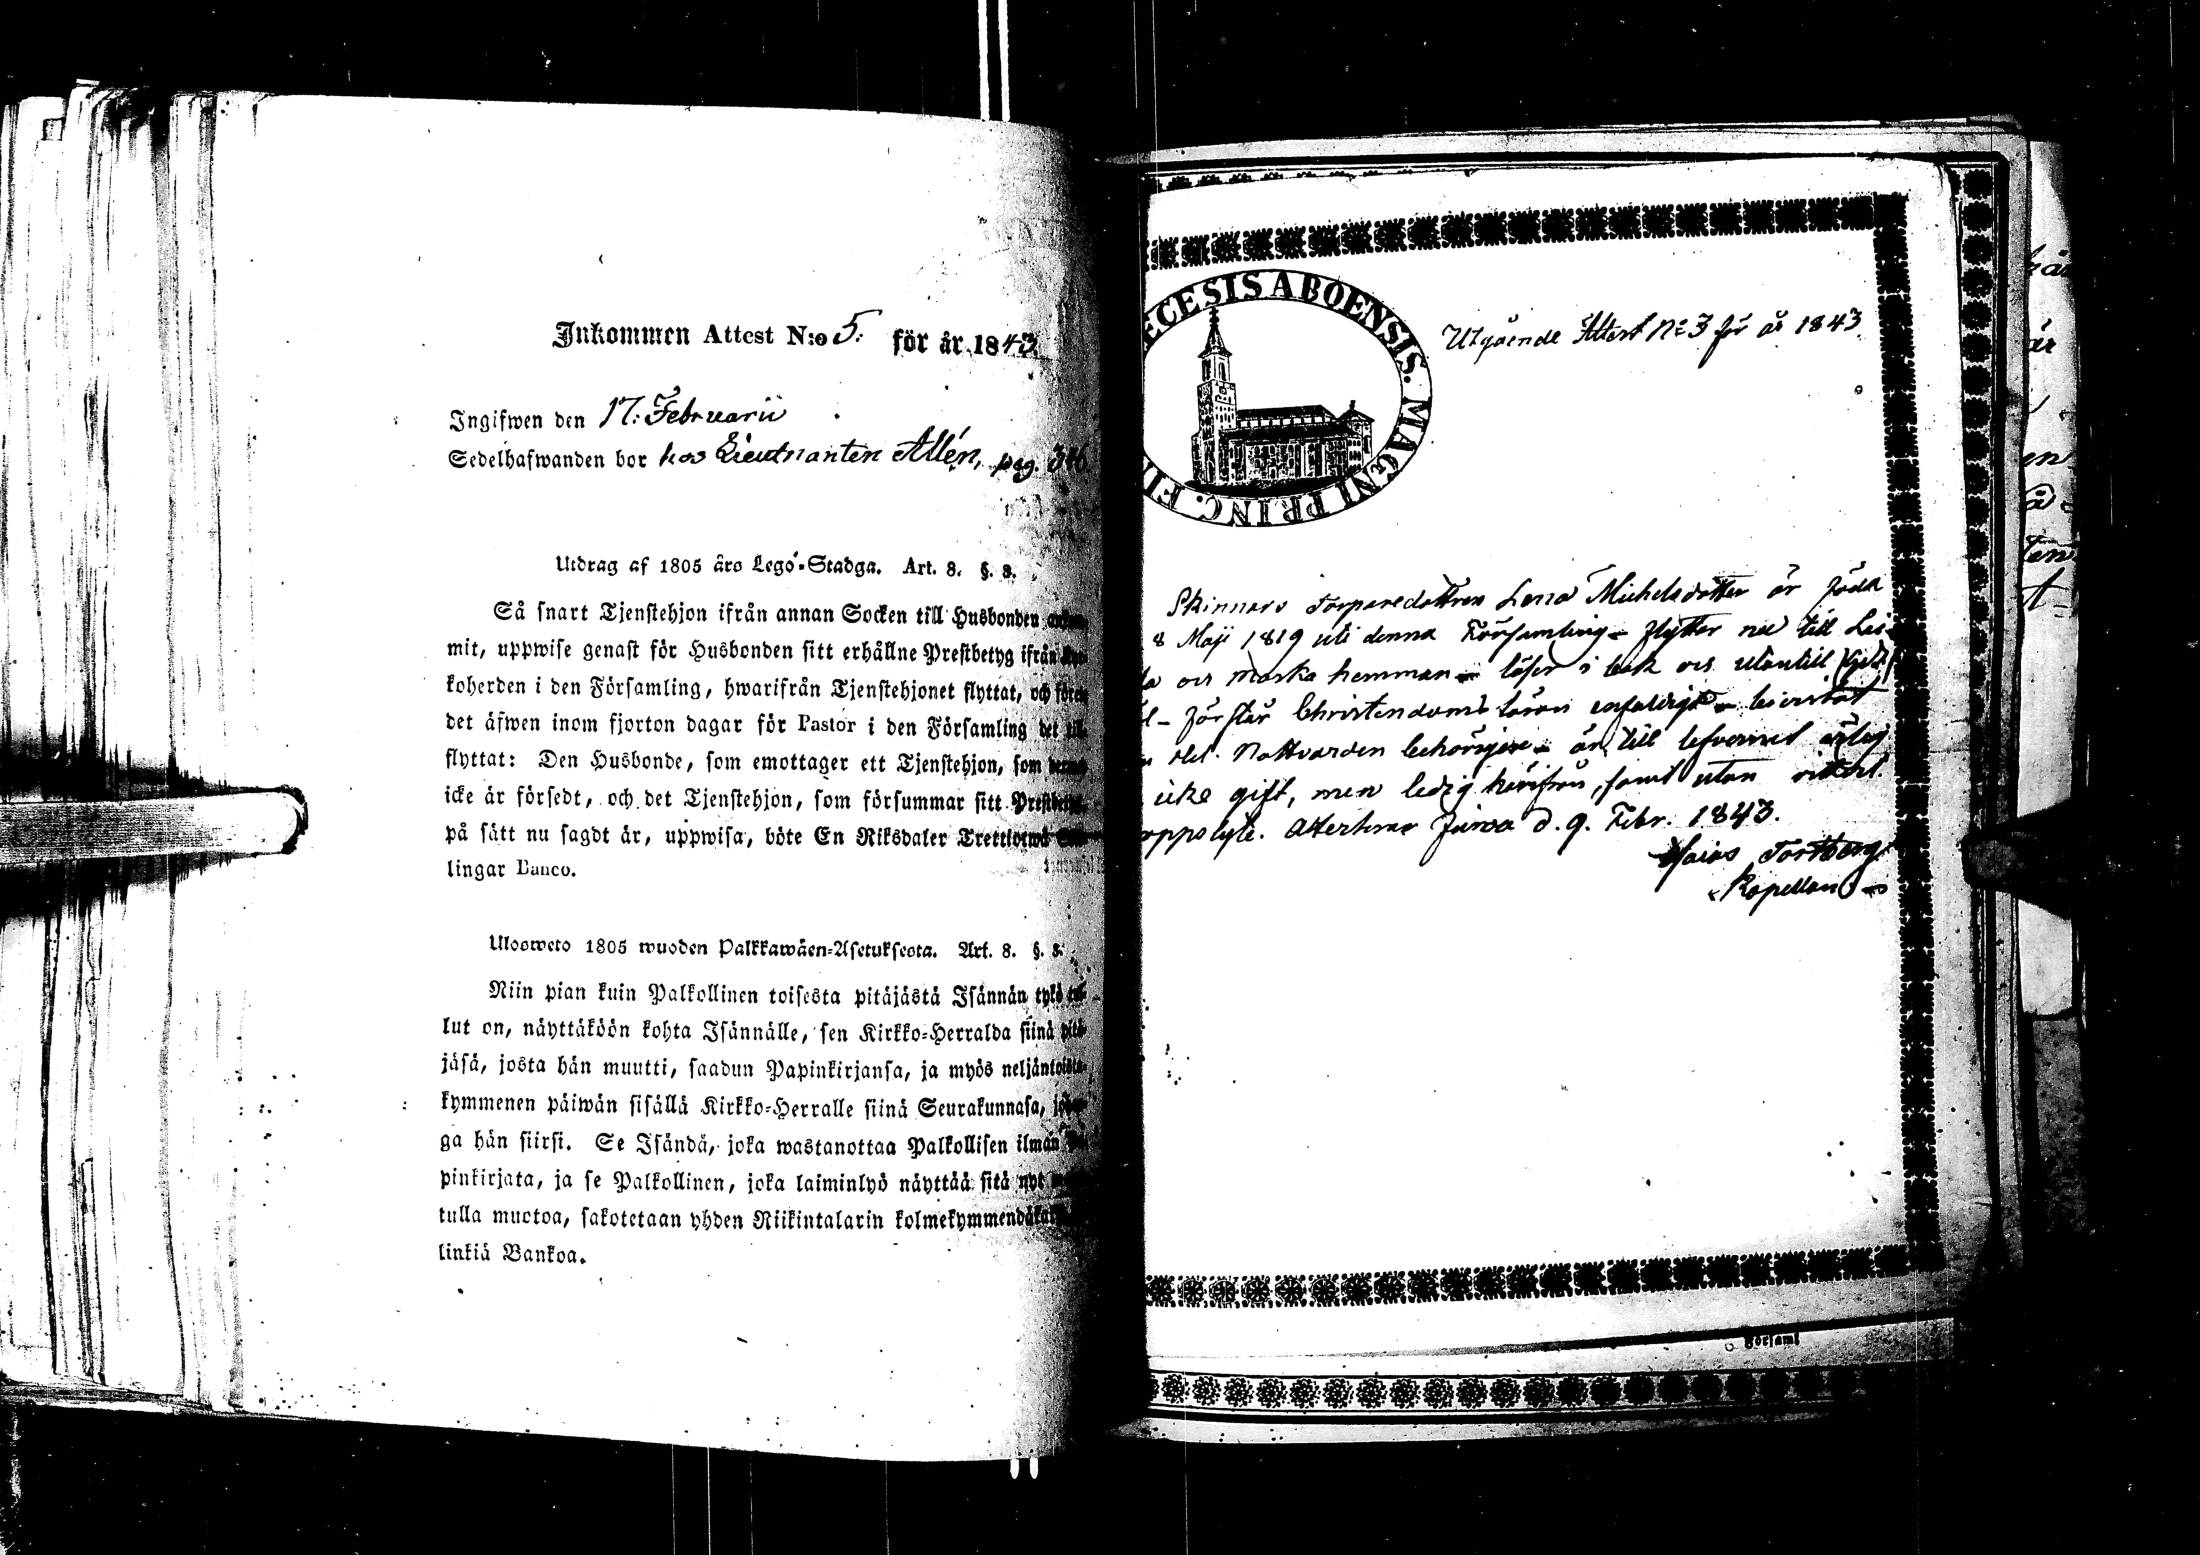 Inkommen Attest N:o 5. för år 1843
Ingifwen den 17. Februarii
Sedelhafwanden bor hos Lieutnanten Allén, pag. 346
Utdrag af 1805 års Lego-Stadga. Art. 8. §. 3.
Så snart Tjenstehjon ifrån annan Socken till Husbonden
mit, uppwise genast för Husbonden sitt erhållne Prestbetyg ifrån
koherden i den Församling, hwarifrån Tjenstehjonet flyttat, och
det äfwen inom fjorton dagar för Pastor i den Församling det
flyttat: Den Husbonde, som emottager ett Tjenstehjon, som
icke är försedt, och det Tjenstehjon, som försummar sitt
på sätt nu sagdt är, uppwisa, böte En Riksdaler Trettiotwå
lingar Banco.
Ulosweto 1805 wuoden Palkkawäen-Asetuksesta. Art. 8. §. 3.
Niin pian kuin Palkollinen toisesta pitäjästä Isännän tykö
lut on, näyttäköön kohta Isännälle, sen Kirkko-Herralda siinä pitä-
jäsä, josta hän muutti, saadun Papinkirjansa, ja myös neljäntoista-
kymmenen päiwän sisällä Kirkko-Herralle siinä Seurakunnasa,
ga hän siirsi. Se Isändä, joka wastanottaa Palkollisen ilman
pinkirjata, ja se Palkollinen, joka laiminlyö näyttää sitä nyt
tulla muotoa, sakotetaan yhden Riikintalarin
linkiä Bankoa.
ECESIS ABOENSIS. MAGNI PRINC. FI
Utgående Attest No 3 för år 1843
Skinnars Torparedottren Lena Michelsdotter är född
8 Maji 1819 uti denna Församling - flyttar nu till
och Maska hemman - läser i bok och utantill
förstår Christendoms läran enfaldigt - bevistat
Nattvarden behörigen - är till lefvernet ärlig
icke gift, men ledig härifrån, samt utan
Attesterar Juwa d. 9. Febr. 1843.
Esaias Forsberg
Kapellan
Församl